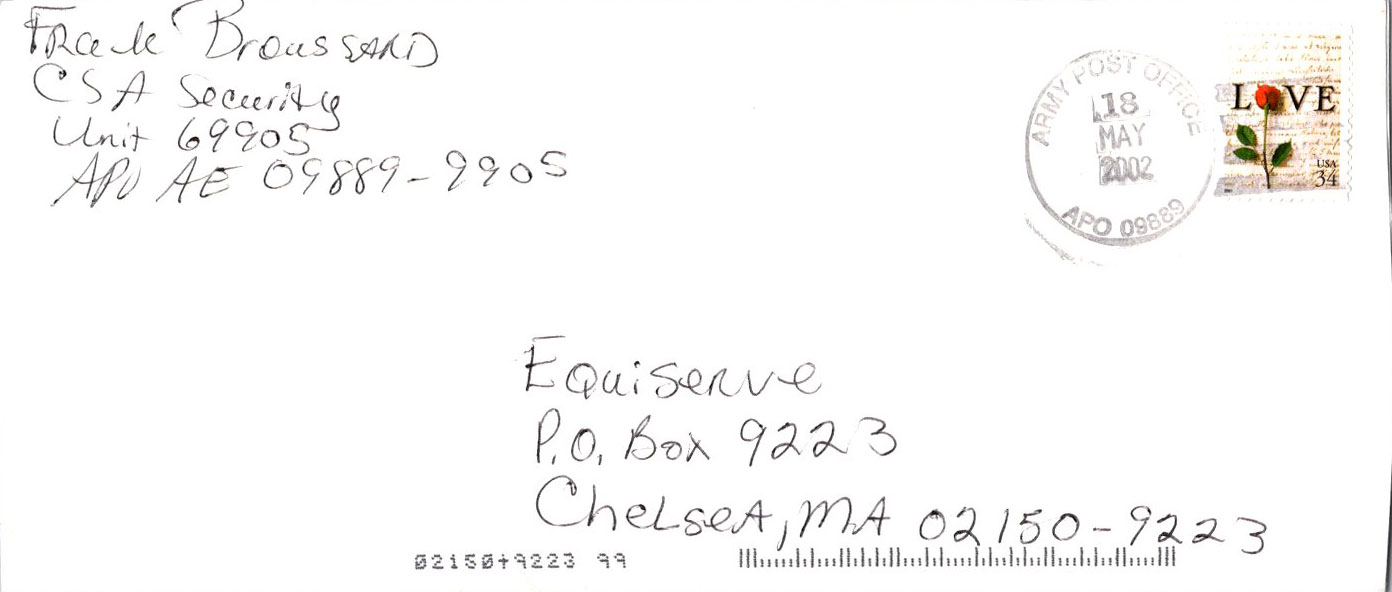 Frank Broussard
CSA Security
Unit 69905
APO AE 09889-9905
ARMY POST OFFICE
18
MAY
2002
APO 09889
LOVE
USA
34
Equiserve
P.O. Box 9223
Chelsea, MA 02150-9223
02150+9223 99